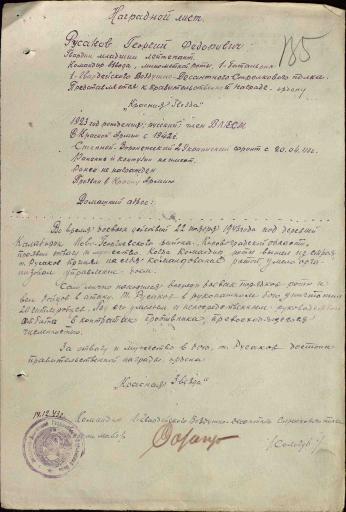 Наградной лист.
185
Русаков Георгий Федорович
Гвардии младший лейтенант.
Командир взвода, минометной роты, 1 батальона
1 Гвардейского Воздушно-Десантного Стрелкового полка.
Представляется к правительственной награде. ордену
"Красная Звезда"
1923 год рождения, русский, член ВЛКСМ
В Красной Армии с 1942г.
Степной-Воронежский 2 Украинский фронт с
Ранений и контузии не имеет.
Ранее не награжден
Призван в Красную Армию
Домашний адрес:
Во время боевых действий 22 ноября 1943 года под деревней
района, Кировоградской области,
проявил отвагу и мужество. Когда командир роты вышел из строя
т. Русаков принял на себя командование ротой, умело орга-
низовал управление боем.
Сам лично находился впереди боевых порядков роты и
вел бойцов в атаку. Тов. Русаков в рукопашном бою уничтожил
под его умелым и непосредственным руководством
отбита контратака противника, превосходящего
численностью.
За отвагу и мужество в бою, т. Русаков достоин
правительственной награды ордена
"Красная Звезда"
14.12.43г.
Командир 1 Гвардейского Воздушно-десантного Стрелкового полка
Гвардии майор